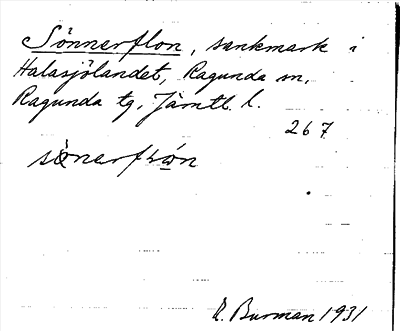 Sönnerflon, sankmark i
Halasjölandet, Ragunda sn,
Ragunda tg. Jämtl. l.
267
R. Burman 1931